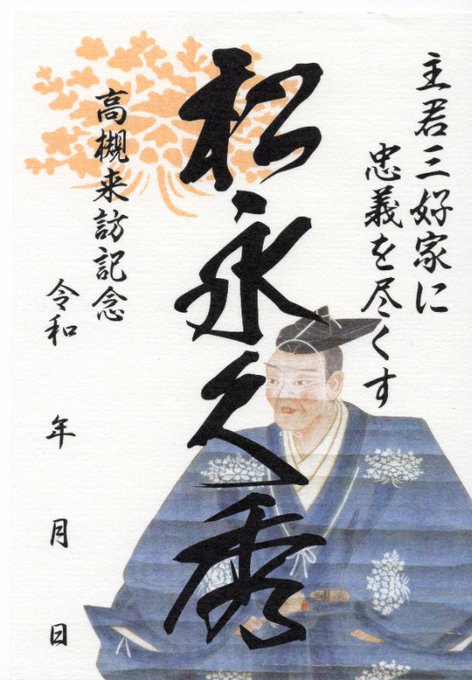 主君三好家に
忠義を尽くす
松永久秀
高槻来訪記念
令和 年 月 日